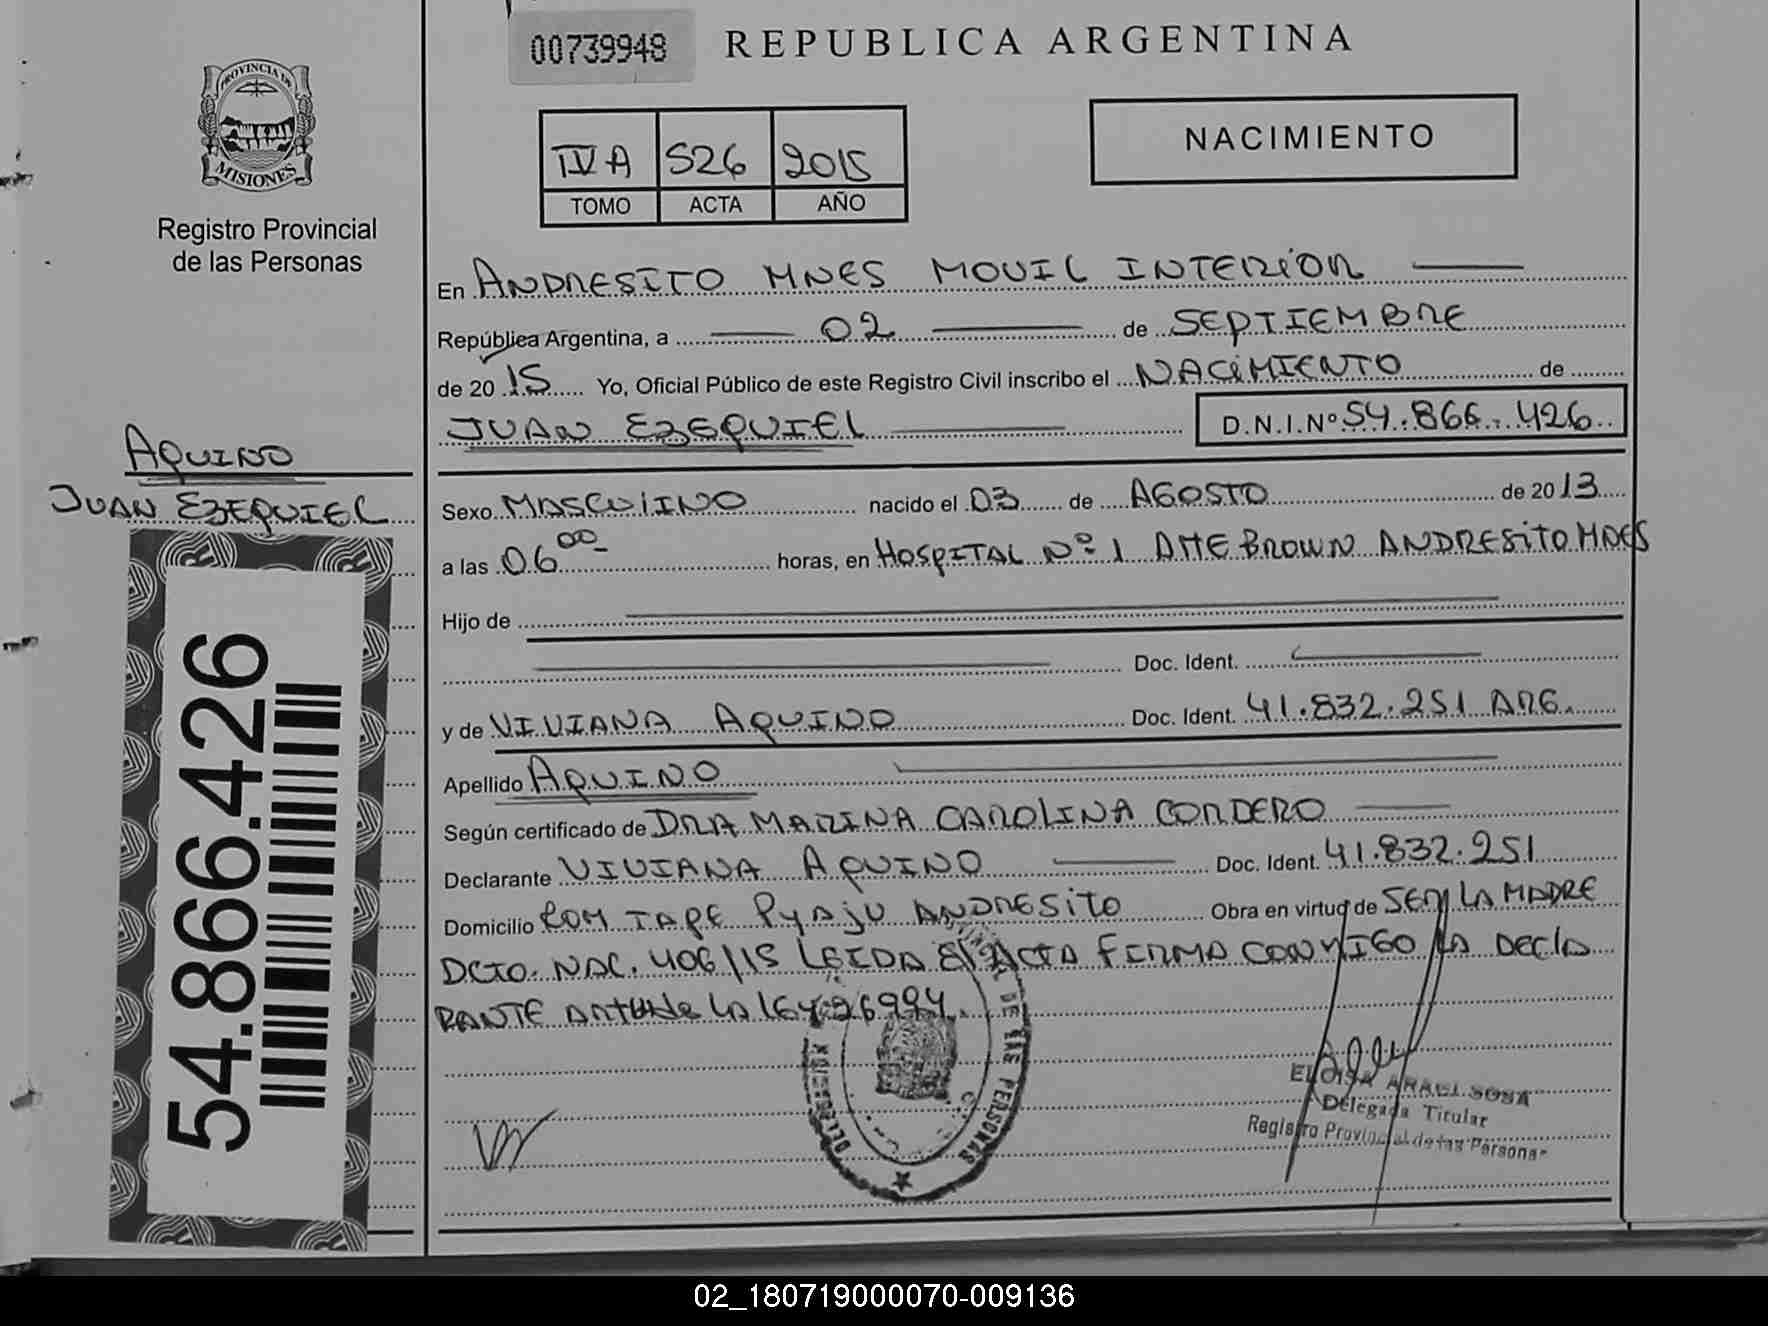 00739948
REPUBLICA ARGENTINA
PROVINCIA DE
MISIONES
Registro Provincial
de las Personas
IV A 526 2015
TOMO ACTA AÑO
NACIMIENTO
En ANDRESITO MNES MOVIL INTERIOR
República Argentina, a 02 de SEPTIEMBRE
de 2015 Yo, Oficial Público de este Registro Civil inscribo el NACIMIENTO de
JUAN EZEQUIEL D.N.I.Nº 54.866.426
AQUINO
JUAN EZEQUIEL
54.866.426
Sexo MASCULINO nacido el 03 de AGOSTO de 2013
a las 06 00 horas, en HOSPITAL Nº 1 ALTE BROWN ANDRESITO MNES
Hijo de
Doc. Ident.
y de VIVIANA AQUINO Doc. Ident. 41.832.251 ARG.
Apellido AQUINO
Según certificado de DRA MARINA CAROLINA CORDERO
Declarante VIVIANA AQUINO Doc. Ident. 41.832.251
Domicilio TAPE PYAJU ANDRESITO Obra en virtud de SER LA MADRE
DCTO. NAC. 406/15 LEIDA EL ACTA FIRMA CONMIGO LA DECLA
RANTE LA 26994.
DE LAS PERSONAS
ELOISA ARACI SOSA
Delegada Titular
Registro Provincial de las Personas
02_180719000070-009136